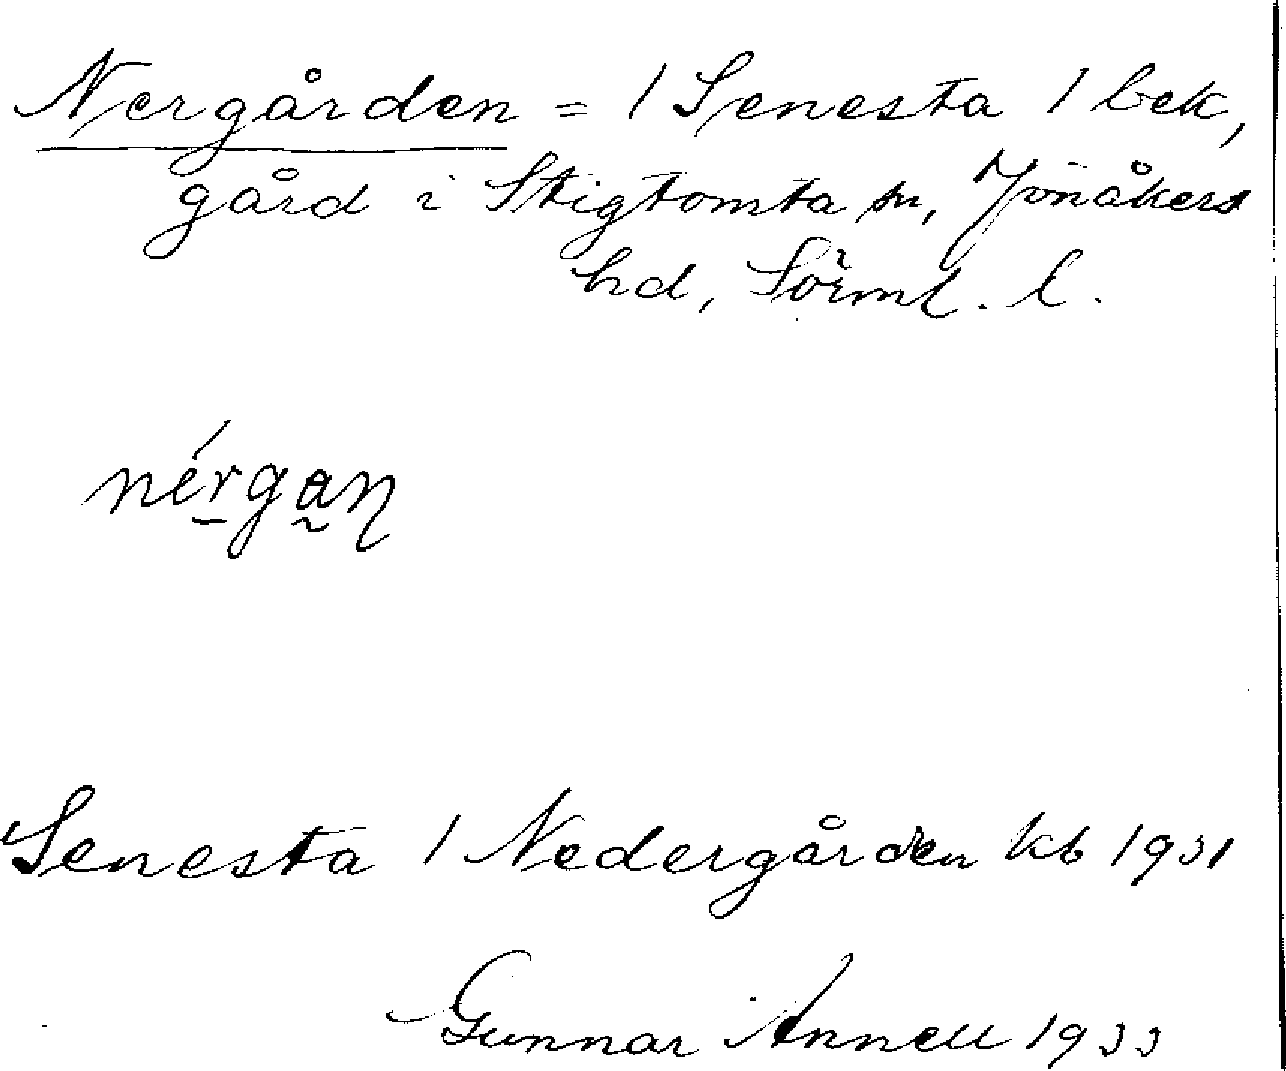 Nergården = 1 Senesta 1 bek,
gård i Stigtomta sn, Jönåkers
hd, Sörml. l.
nérgan̥
Senesta 1 Nedergården kb 1931
Gunnar Annell 1933